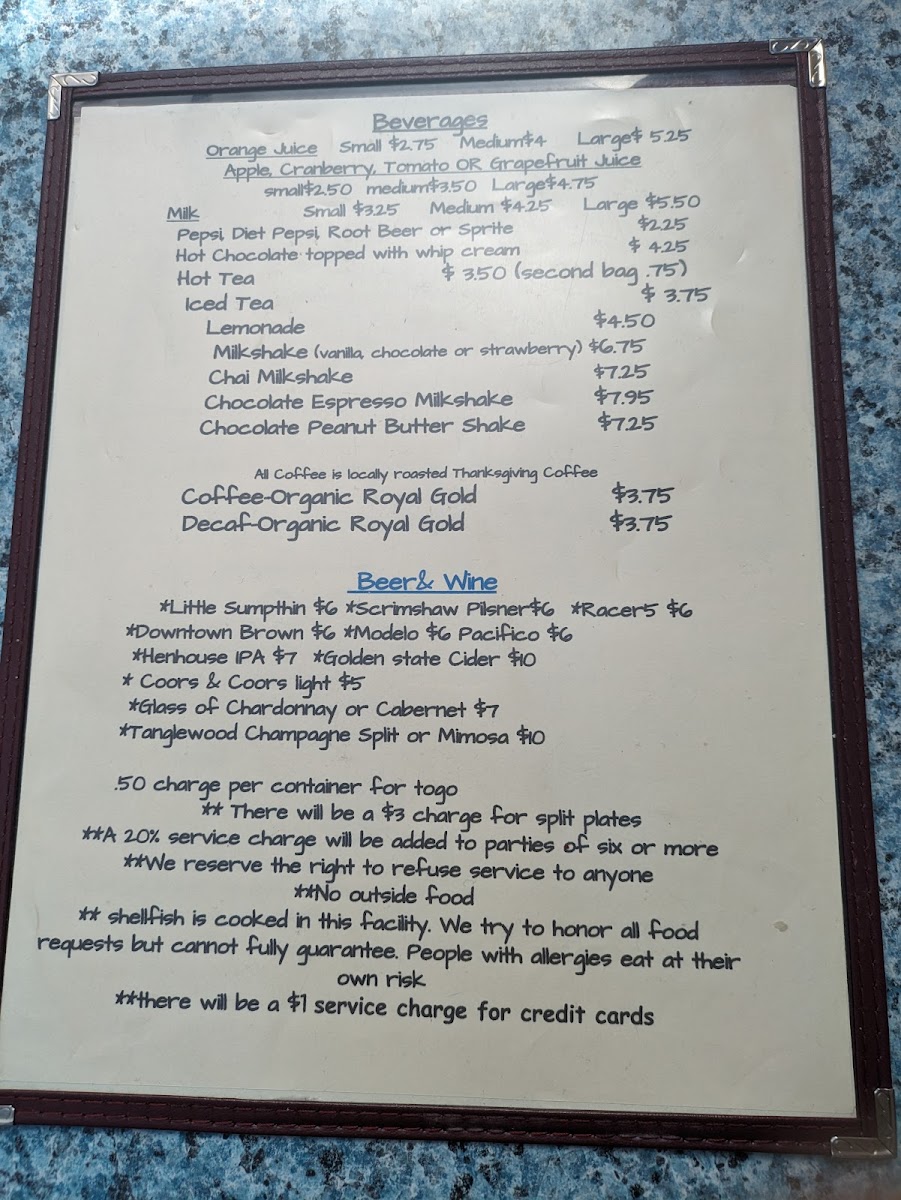 Beverages
Orange Juice Small $2.75 Medium$4 Large$ 5.25
Apple, Cranberry, Tomato OR Grapefruit Juice
small$2.50 medium$3.50 Large$4.75
Milk Small $3.25 Medium $4.25 Large $5.50
Pepsi, Diet Pepsi, Root Beer or Sprite $2.25
Hot Chocolate topped with whip cream $ 4.25
Hot Tea $ 3.50 (second bag .75)
Iced Tea $ 3.75
Lemonade $4.50
Milkshake (vanilla, chocolate or strawberry) $6.75
Chai Milkshake $7.25
Chocolate Espresso Milkshake $7.95
Chocolate Peanut Butter Shake $7.25
All Coffee is locally roasted Thanksgiving Coffee
Coffee-Organic Royal Gold $3.75
Decaf-Organic Royal Gold $3.75
Beer& Wine
*Little Sumpthin $6 *Scrimshaw Pilsner$6 *Racer5 $6
*Downtown Brown $6 *Modelo $6 Pacifico $6
*Henhouse IPA $7 *Golden state Cider $10
* Coors & Coors light $5
*Glass of Chardonnay or Cabernet $7
*Tanglewood Champagne Split or Mimosa $10
.50 charge per container for togo
** There will be a $3 charge for split plates
**A 20% service charge will be added to parties of six or more
**We reserve the right to refuse service to anyone
**No outside food
** shellfish is cooked in this facility. We try to honor all food
requests but cannot fully guarantee. People with allergies eat at their
own risk
**there will be a $1 service charge for credit cards